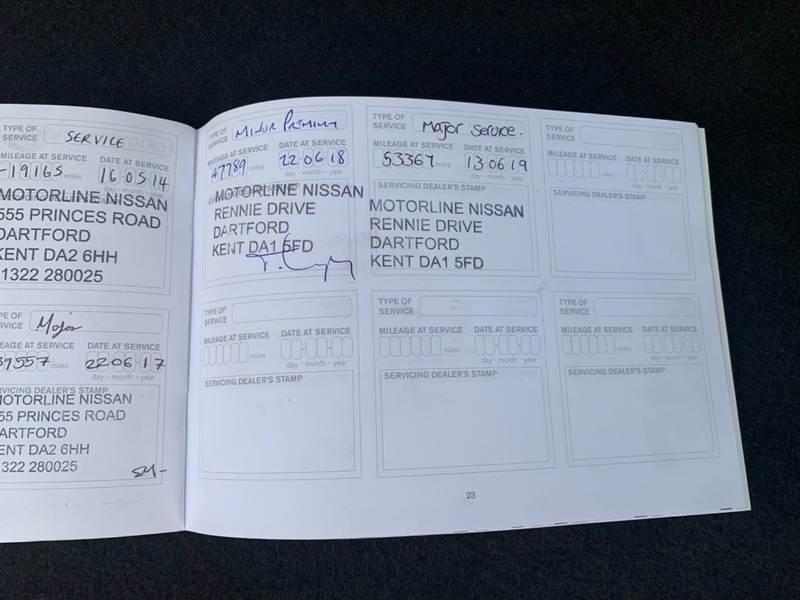 TYPE OF SERVICE SERVICE
MILEAGE AT SERVICE DATE AT SERVICE
19165 miles 16 05 14
day - month - year
MOTORLINE NISSAN
555 PRINCES ROAD
DARTFORD
KENT DA2 6HH
1322 280025
TYPE OF SERVICE Major
MILEAGE AT SERVICE DATE AT SERVICE
39557 miles 22 06 17
day - month - year
SERVICING DEALER'S STAMP
MOTORLINE NISSAN
555 PRINCES ROAD
DARTFORD
KENT DA2 6HH
1322 280025
TYPE OF SERVICE Minor Premium
MILEAGE AT SERVICE DATE AT SERVICE
47789 miles 22 06 18
day - month - year
MOTORLINE NISSAN
RENNIE DRIVE
DARTFORD
KENT DA1 5FD
TYPE OF SERVICE Major Service.
MILEAGE AT SERVICE DATE AT SERVICE
53367 miles 13 06 19
day - month - year
SERVICING DEALER'S STAMP
MOTORLINE NISSAN
RENNIE DRIVE
DARTFORD
KENT DA1 5FD
TYPE OF SERVICE
MILEAGE AT SERVICE DATE AT SERVICE
miles day - month - year
SERVICING DEALER'S STAMP
TYPE OF SERVICE
MILEAGE AT SERVICE DATE AT SERVICE
miles day - month - year
SERVICING DEALER'S STAMP
TYPE OF SERVICE
MILEAGE AT SERVICE DATE AT SERVICE
miles day - month - year
SERVICING DEALER'S STAMP
TYPE OF SERVICE
MILEAGE AT SERVICE DATE AT SERVICE
miles day - month - year
SERVICING DEALER'S STAMP
23